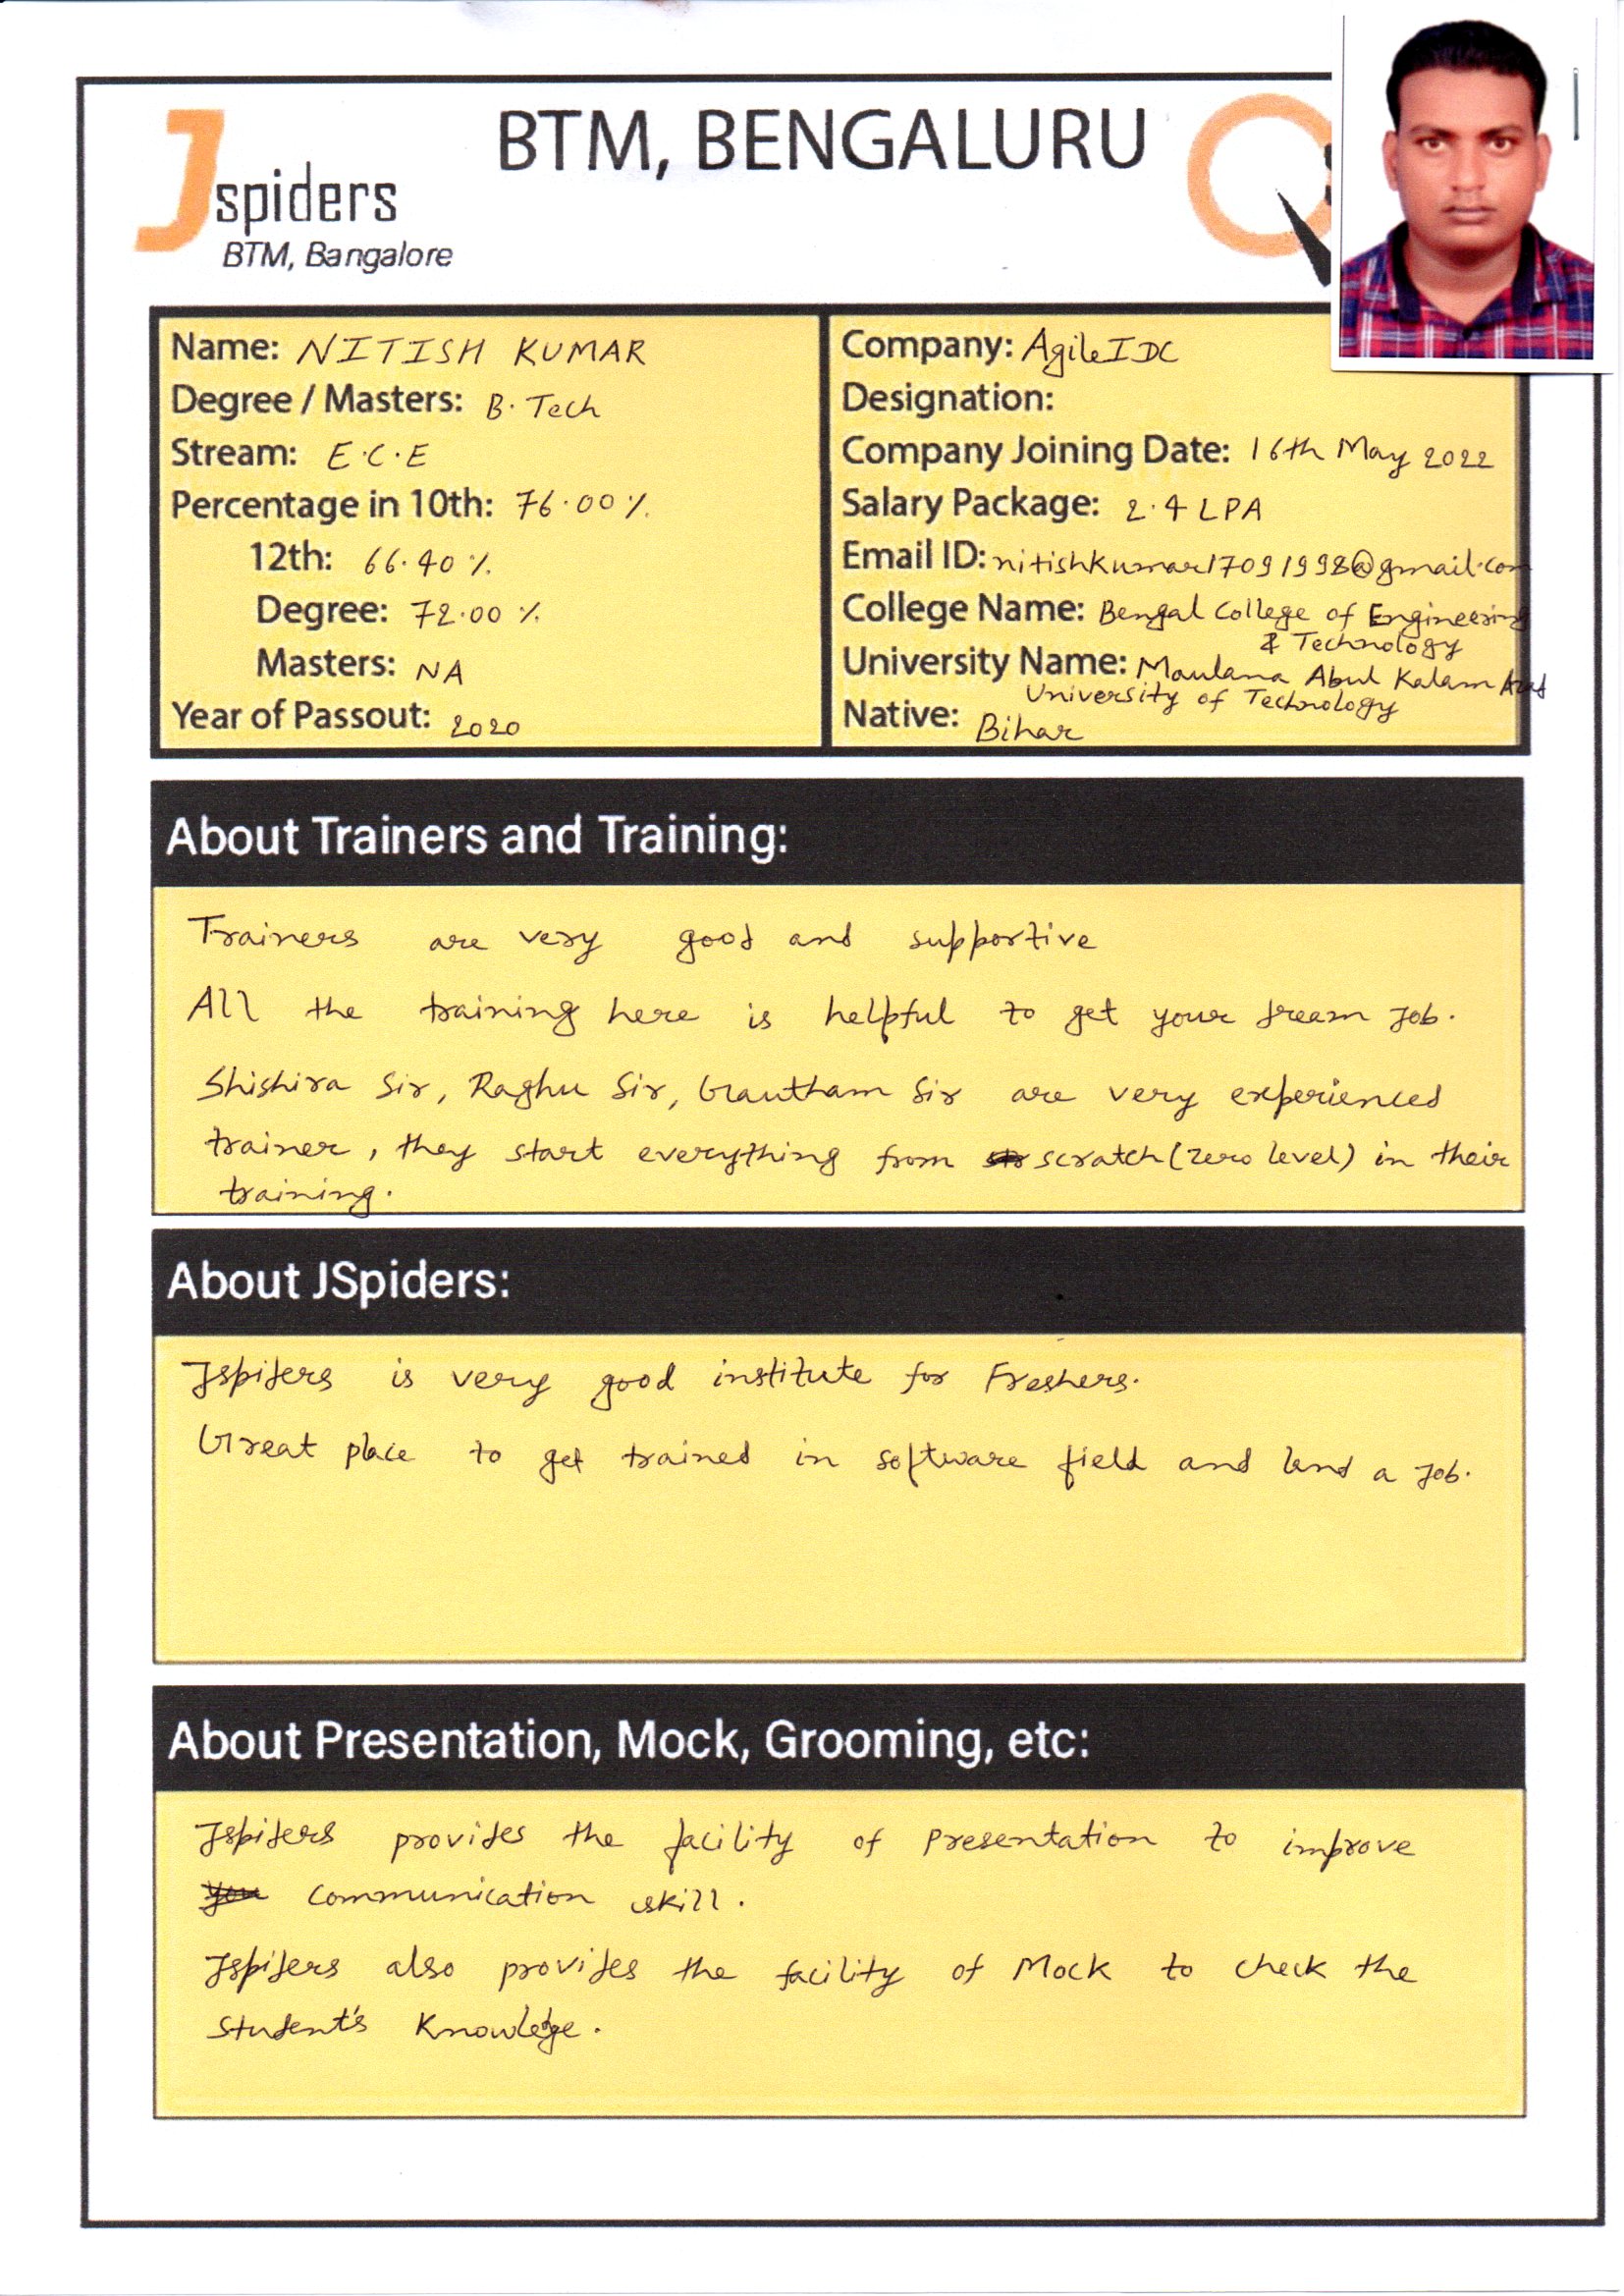 BTM, BENGALURU
Jspiders
BTM, Bangalore
Name: NITISH KUMAR
Degree / Masters: B. Tech
Stream: E.C.E
Percentage in 10th: 76.00 %
12th: 66.40 %
Degree: 72.00 %
Masters: NA
Year of Passout: 2020
Company: AgileIDC
Designation:
Company Joining Date: 16th May 2022
Salary Package: 2.4 LPA
Email ID: nitishkumar17091998@gmail.com
College Name: Bengal College of Engineering
& Technology
University Name: Maulana Abul Kalam
University of Technology
Native: Bihar
About Trainers and Training:
Trainers are very good and supportive
All the training here is helpful to get your dream Job.
Shishira Sir, Raghu Sir, Gautham Sir are very experienced
trainer, they start everything from scratch (zero level) in their
training.
About JSpiders:
Jspiders is very good institute for Freshers.
Great place to get trained in software field and land a Job.
About Presentation, Mock, Grooming, etc:
Jspiders provides the facility of Presentation to improve
you communication skill.
Jspiders also provides the facility of Mock to check the
Student's Knowledge.